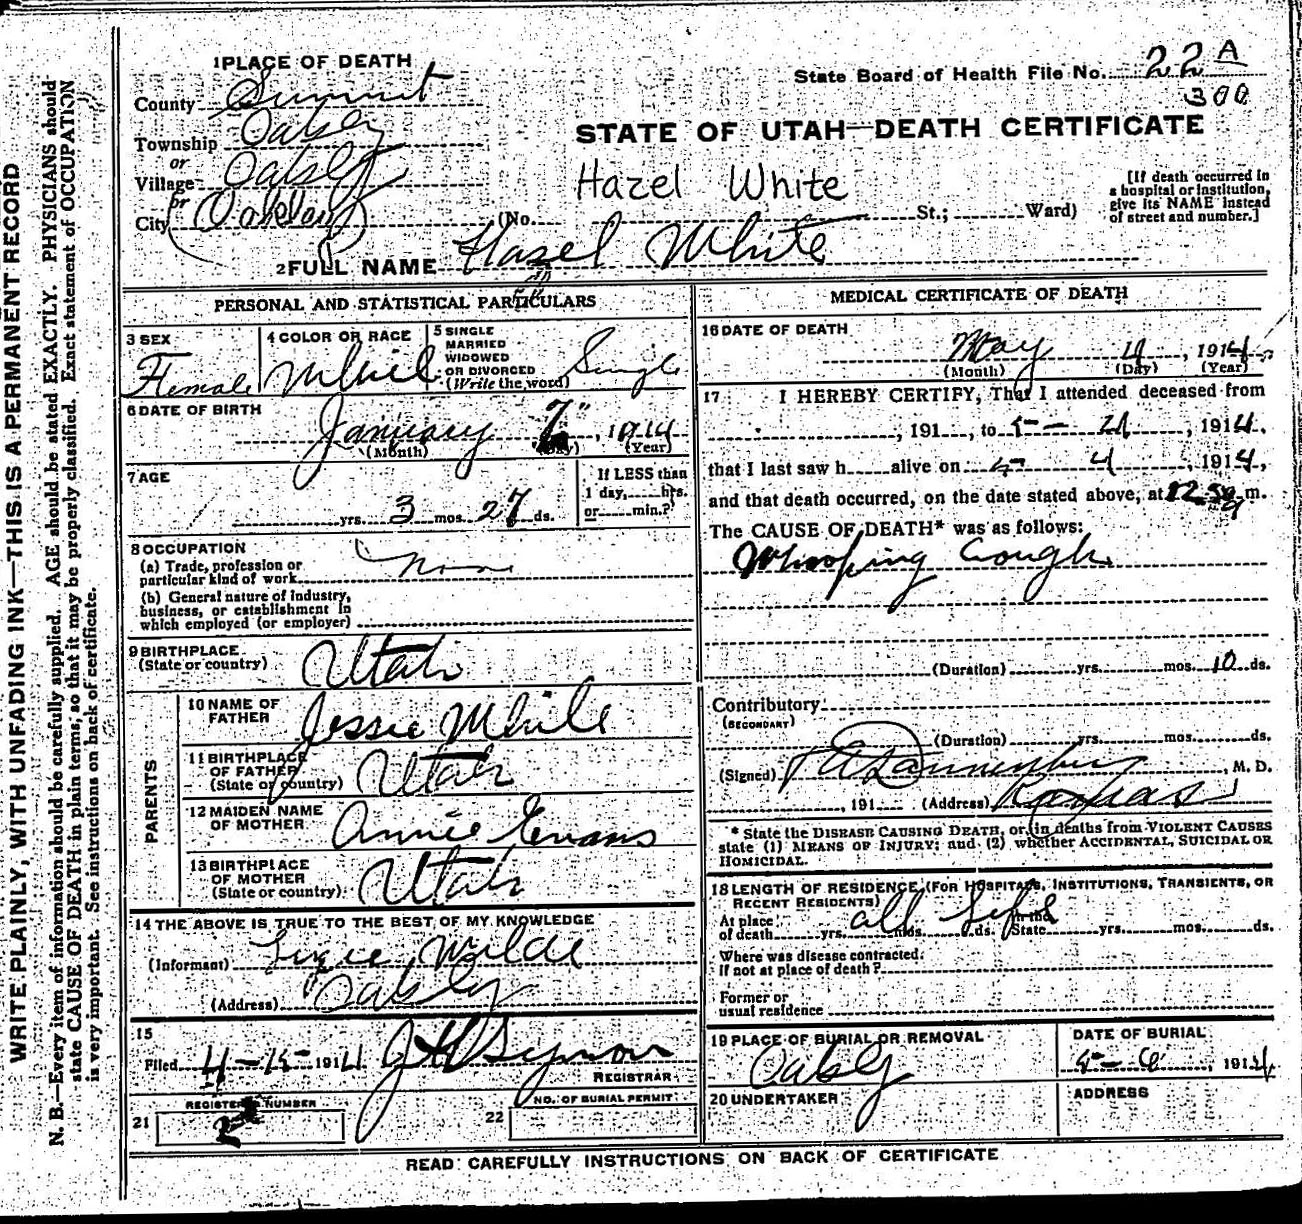 WRITE PLAINLY, WITH UNFADING INK—THIS IS A PERMANENT RECORD
N. B.—Every item of information should be carefully supplied. AGE should be stated EXACTLY. PHYSICIANS should
state CAUSE OF DEATH in plain terms, so that it may be properly classified. Exact statement of OCCUPATION
is very important. See instructions on back of certificate.
1 PLACE OF DEATH
County Summit
Township Oakley
or
Village Oakley
or
City (Oakley)
State Board of Health File No. 22 A
300
STATE OF UTAH—DEATH CERTIFICATE
Hazel White
(No. St.; Ward)
[If death occurred in
a hospital or institution,
give its NAME instead
of street and number.]
2 FULL NAME Hazel White
PERSONAL AND STATISTICAL PARTICULARS
3 SEX
Female
4 COLOR OR RACE
White
5 SINGLE
MARRIED
WIDOWED
OR DIVORCED
(Write the word) Single
6 DATE OF BIRTH
January 7", 1914
(Month) (Day) (Year)
7 AGE
yrs. 3 mos. 27 ds.
If LESS than
1 day, hrs.
or min.?
8 OCCUPATION
(a) Trade, profession or
particular kind of work None
(b) General nature of industry,
business, or establishment in
which employed (or employer)
9 BIRTHPLACE
(State or country) Utah
PARENTS
10 NAME OF
FATHER Jessie White
11 BIRTHPLACE
OF FATHER
(State or country) Utah
12 MAIDEN NAME
OF MOTHER Annie Evans
13 BIRTHPLACE
OF MOTHER
(State or country) Utah
14 THE ABOVE IS TRUE TO THE BEST OF MY KNOWLEDGE
(Informant) Wilde
(Address) Oakley
15
Filed 4-15- 1914 J H Seymour
REGISTRAR
REGISTERED NUMBER
21 2
NO. OF BURIAL PERMIT
22
MEDICAL CERTIFICATE OF DEATH
16 DATE OF DEATH
May 4, 1914
(Month) (Day) (Year)
17 I HEREBY CERTIFY, That I attended deceased from
, 191 , to 5- 4, 1914,
that I last saw h alive on 5- 4, 1914,
and that death occurred, on the date stated above, at 12.50 a m.
The CAUSE OF DEATH* was as follows:
Whooping Cough
(Duration) yrs. mos. 10 ds.
Contributory
(SECONDARY)
(Duration) yrs. mos. ds.
(Signed) , M. D.
, 191 (Address) Kamas
* State the DISEASE CAUSING DEATH, or, in deaths from VIOLENT CAUSES
state (1) MEANS OF INJURY; and (2) whether ACCIDENTAL, SUICIDAL OR
HOMICIDAL.
18 LENGTH OF RESIDENCE (FOR HOSPITALS, INSTITUTIONS, TRANSIENTS, OR
RECENT RESIDENTS)
At place In the
of death yrs. mos. ds. State yrs. mos. ds.
all life
Where was disease contracted,
if not at place of death?
Former or
usual residence
19 PLACE OF BURIAL OR REMOVAL
Oakley
DATE OF BURIAL
5-6, 1914
20 UNDERTAKER
ADDRESS
READ CAREFULLY INSTRUCTIONS ON BACK OF CERTIFICATE